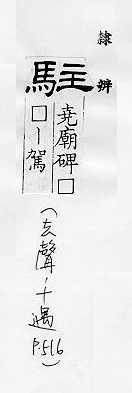 隸辨
駐
堯廟碑□
□丨駕
(去聲·十遇 P.516)